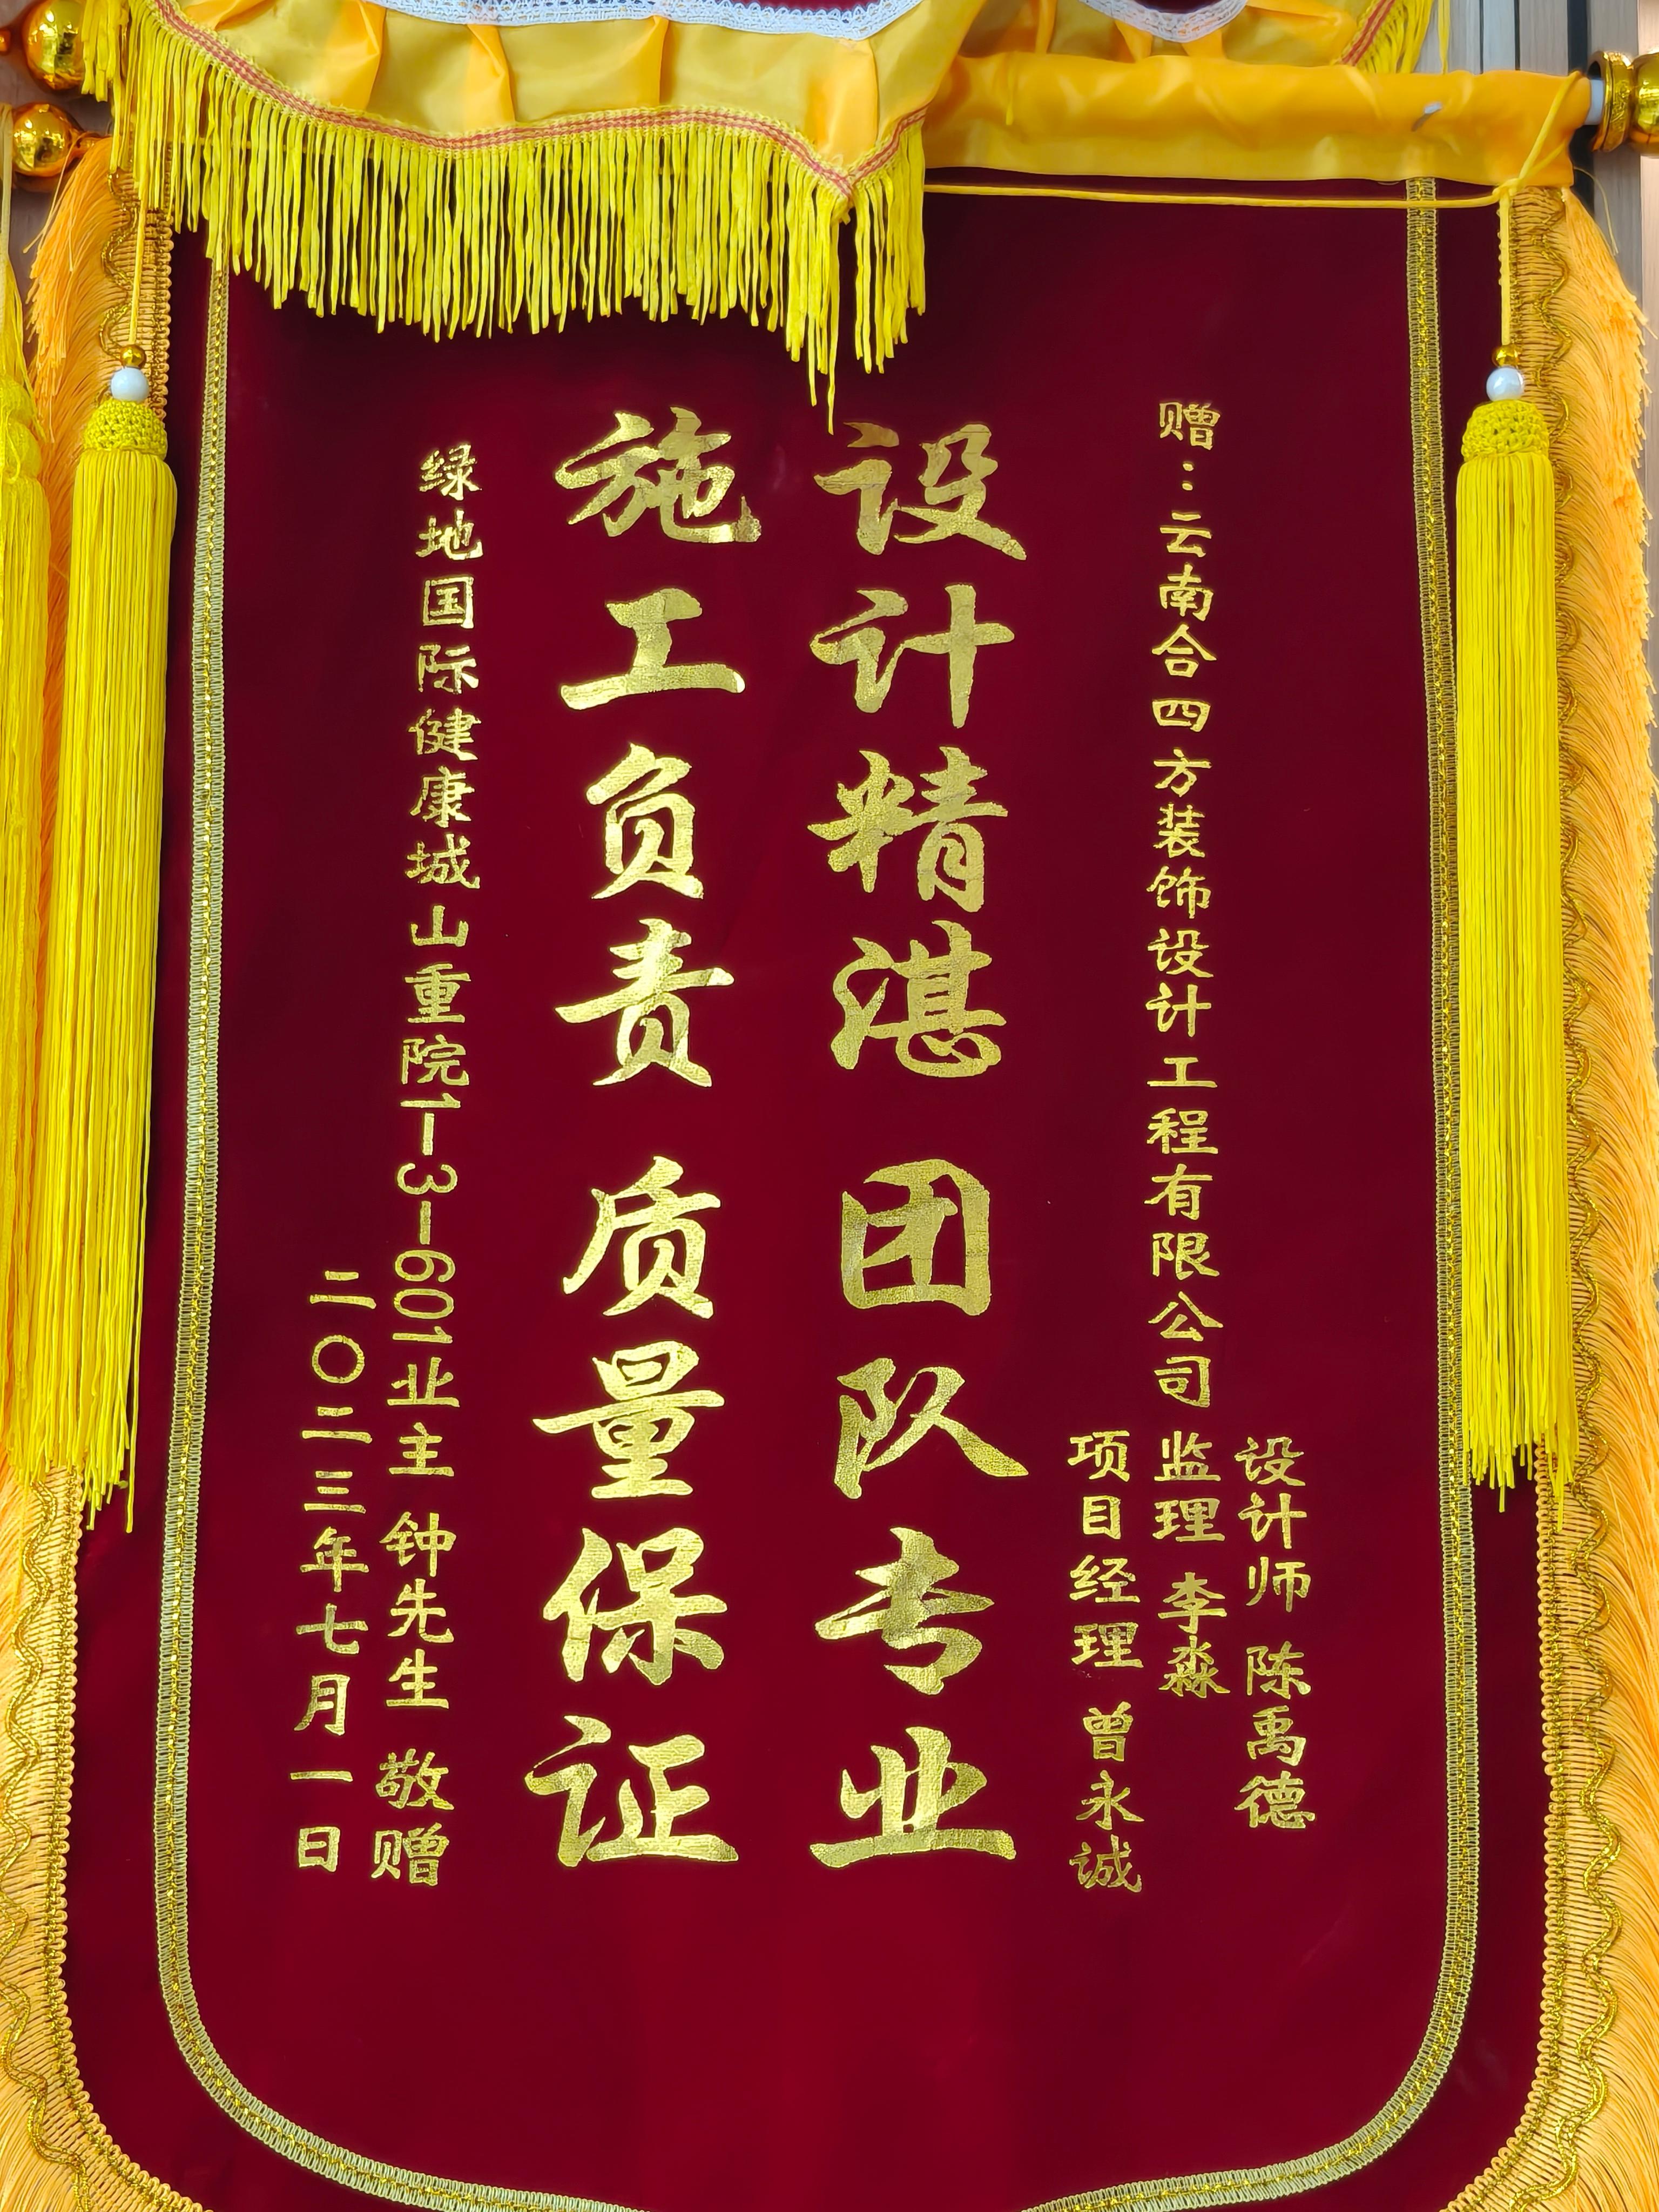 赠：云南合四方装饰设计工程有限公司
设计师 陈禹德
监理 李淼
项目经理 曾永诚
设计精湛 团队专业
施工负责 质量保证
绿地国际健康城山重院1-3-601业主 钟先生 敬赠
二〇二三年七月一日